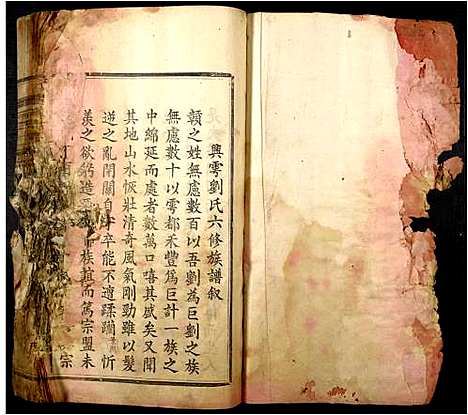 興雩劉氏六修族譜叙
贛之姓無慮數百以吾劉為巨劉之族
無慮數十以雩都禾豐爲巨計一族之
中綿延而處者數萬口嘻其盛矣又聞
其地山水恢壯清奇風氣剛勁雖以髮
逆之亂閉關自守卒能不遭蹂躪忻
羨之欲躬造族誼而篤宗盟未
宗